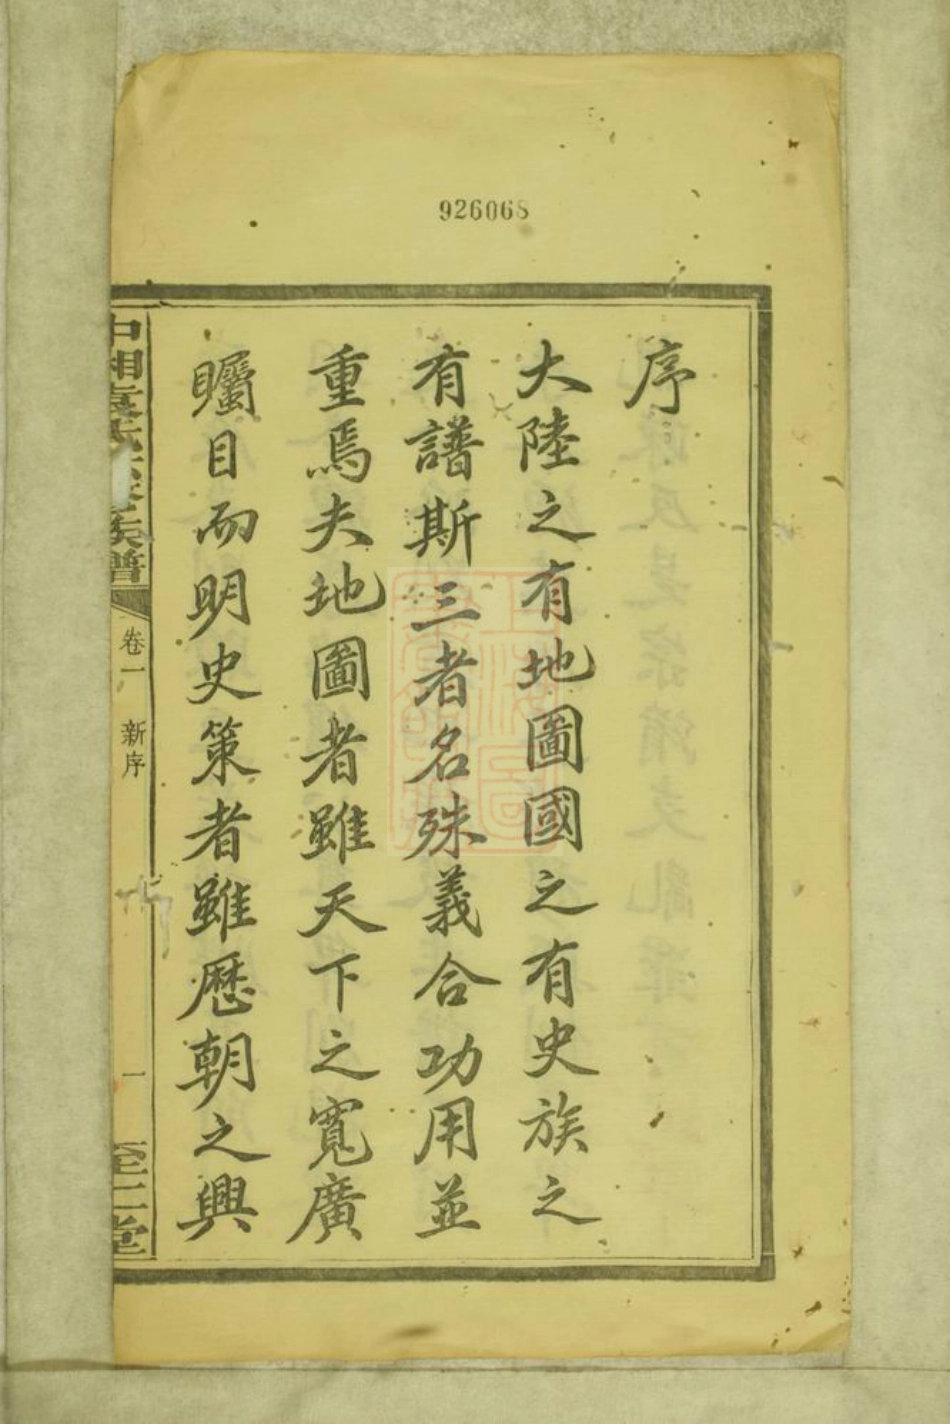 926068
序
大陸之有地圖國之有史族之
有譜斯三者名殊義合功用並
重焉夫地圖者雖天下之寬廣
矚目而明史策者雖歷朝之興
中湘袁氏六修族譜
卷一
新序
一
至仁堂